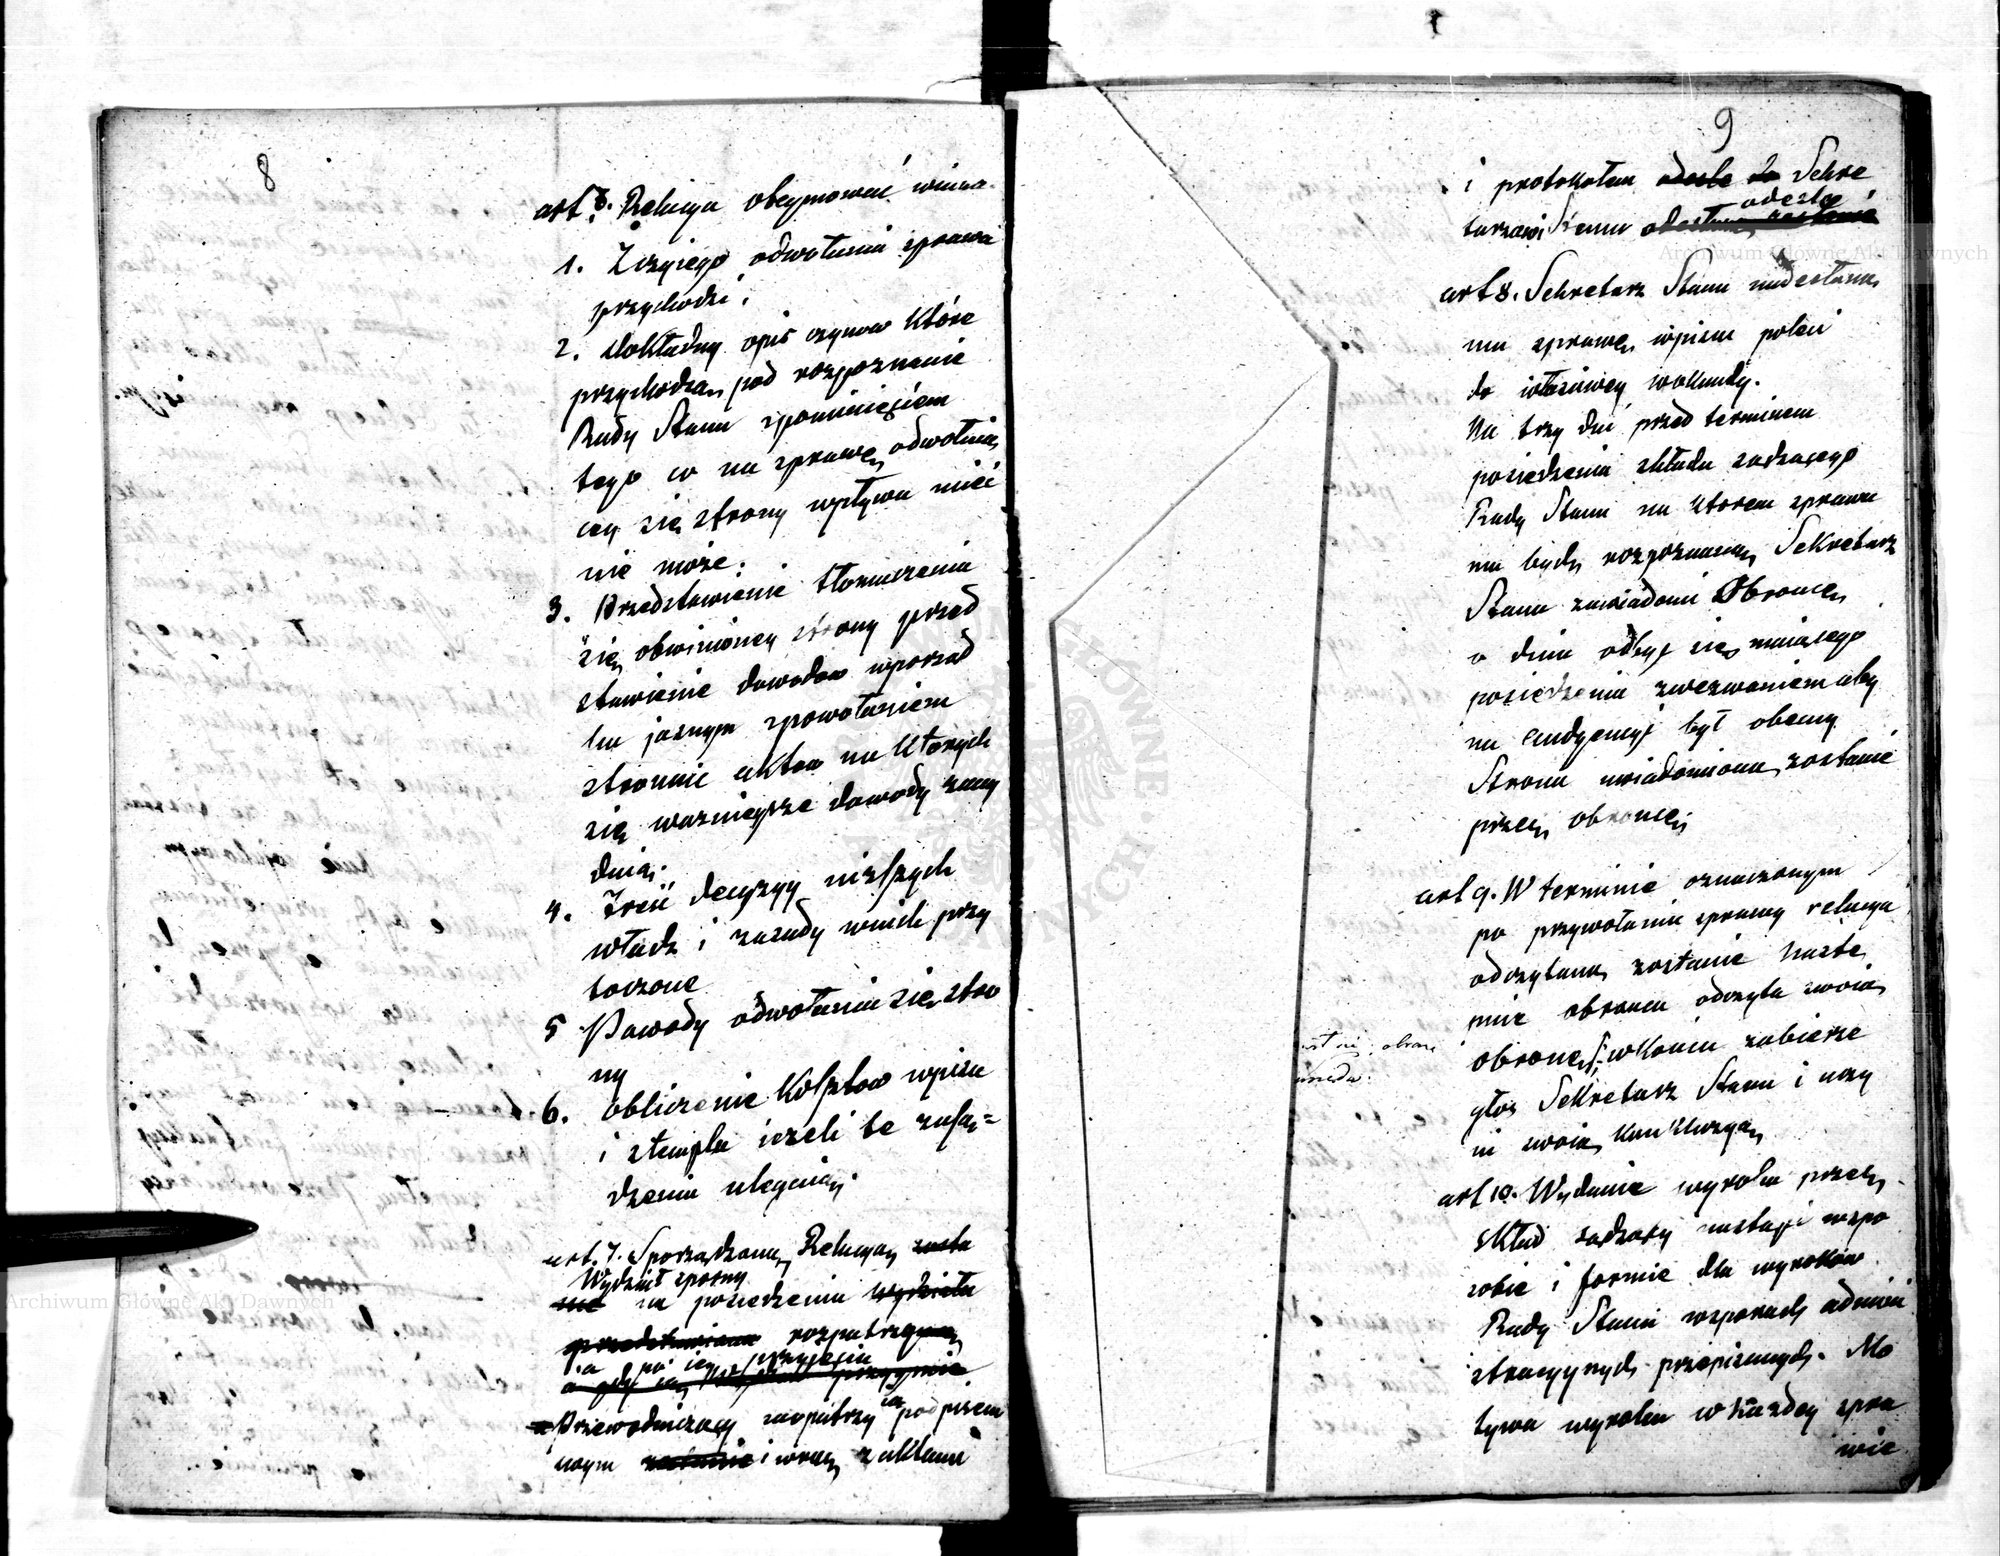 8
art 6. Relacya obeymować winna.
1. Z czyiego odwołania sprawa
przychodzi,
2. dokładny opis czynow które
przychodzą pod rozpoznanie
Rady Stanu zpominięciem
tego co na sprawę odwołuią
cey się strony wpływu mieć
nie może.
3. Przedstawienie tłomaczenia
się obwinioney strony przed
stawienie dowodow wporząd
ku jasnym zpowołaniem
stronnic aktow na których
się ważnieysze dowody znay
duią.
4. Treść decyzyy niższych
władz i zasady wnich przy
toczone
5 Powody odwołania się stro
ny
6. obliczenie kosztow wpisu
i stempla ieżeli te zasą=
dzeniu ulegaią.
art. 7. Sporządzoną Relacyą zosta
Wydział sporny
nie na posiedzeniu wydziału
przedstawiona rozpatrzy
a po iey przyięciu
a gdy ią przyymie
Przewodniczący zaopatrzy ią podpisem
swym zostanie i wraz z aktami
9
i protokołem odesle do Sekre
odeszle
tarzowi Stanu odesłana zostanie
art 8. Sekretarz Stanu nadesłaną
mu sprawę wpisać poleci
do właściwey wokandy.
Na trzy dni przed terminem
posiedzenia składu sądzącego
Rady Stanu na ktorem sprawa
ma bydź rozpoznaną Sekretarz
Stanu zawiadomi Obroncę
o dniu odbyć się maiącego
posiedzenia zwezwaniem aby
na audyencyi był obecny
Strona uwiadomiona zostanie
przez obroncę
art 9. W terminie oznaczonym
po przywołaniu sprawy relacya
odczytaną zostanie nastę
pnie obronca odczyta swoią
obronę, wkoncu zabierze
głos Sekretarz Stanu i uczy
ni swoią konkluzyą
art 10. Wydanie wyroku przez
skład sądzący nastąpi wspo
sobie i formie dla wyroków
Rady Stanu wsporach admini
stracyynych przepisanych. Mo
tywa wyroku w każdey spra
wie
Archiwum Główne Akt Dawnych
Archiwum Główne Akt Dawnych